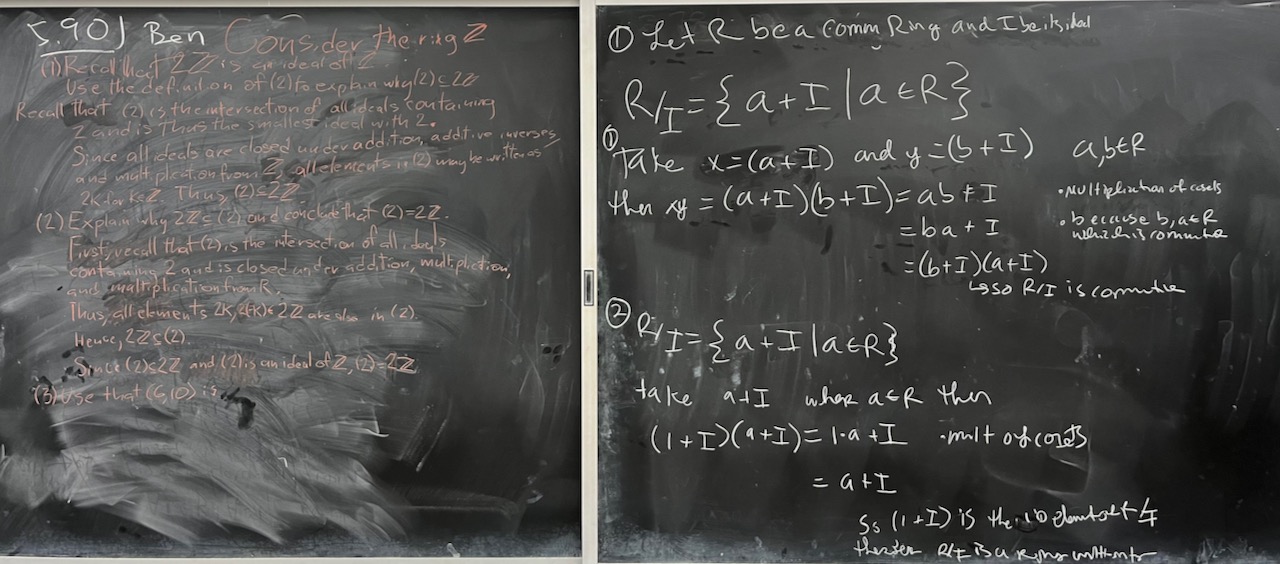 5.90) Ben Consider the ring ℤ
(1) Recall that 2ℤ is an ideal of ℤ
Use the definition of (2) to explain why (2) ⊆ 2ℤ
Recall that (2) is the intersection of all ideals containing
2 and is thus the smallest ideal with 2.
Since all ideals are closed under addition, additive inverses,
and multiplication from ℤ, all elements in (2) may be written as
2k for k∈ℤ. Thus, (2) ⊆ 2ℤ.
(2) Explain why 2ℤ ⊆ (2) and conclude that (2) = 2ℤ.
First, recall that (2) is the intersection of all ideals
containing 2 and is closed under addition, multipliction,
and multiplication from R.
Thus, all elements 2k, 2(-k) ∈ 2ℤ are also in (2).
Hence, 2ℤ ⊆ (2).
Since (2) ⊆ 2ℤ and (2) is an ideal of ℤ, (2) = 2ℤ
(3) Use that (6,10) is
① Let R be a comm Ring and I be its ideal
R/I = {a + I | a ∈ R}
①
Take x = (a+I) and y = (b+I) a,b∈R
then xy = (a+I)(b+I) = ab + I • Multiplication of cosets
= ba + I • because b,a∈R
which is commutive
= (b+I)(a+I)
↳ so R/I is commutive
② R/I = {a + I | a∈R}
take a+I where a∈R then
(1+I)(a+I) = 1·a + I • mult of cosets
= a+I
So (1+I) is the id element of R/I